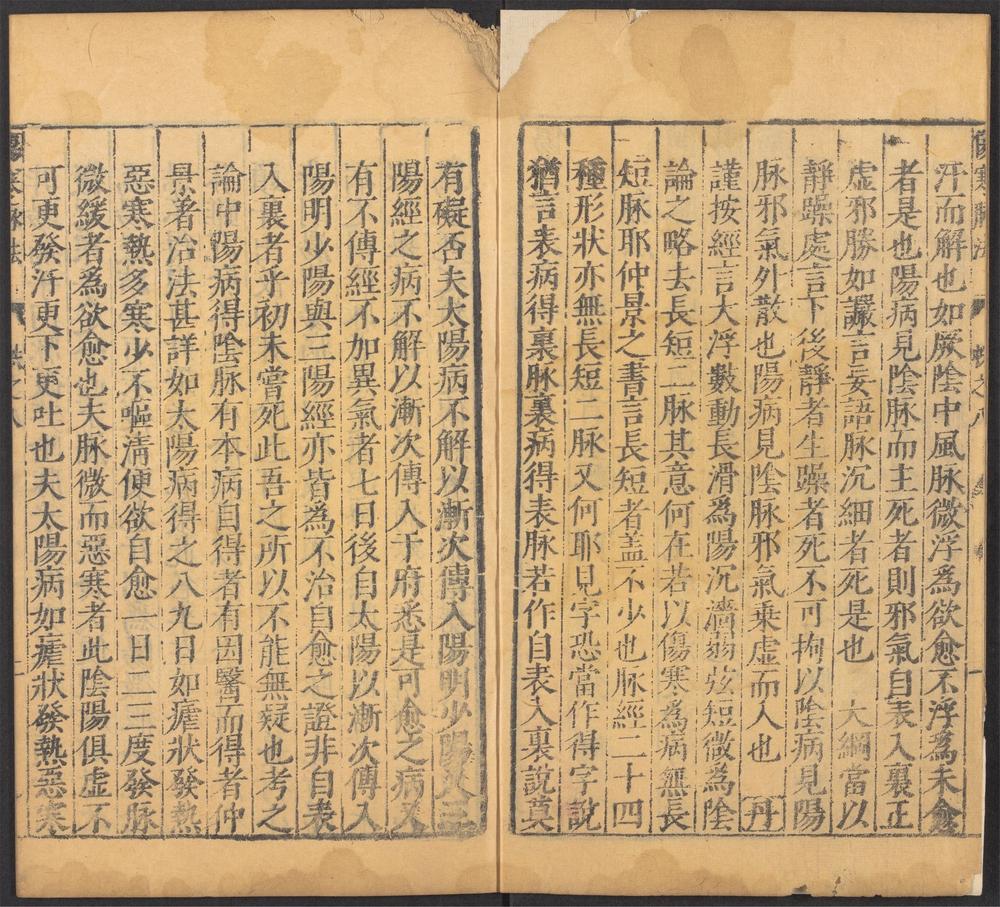 傷寒脉法
卷之八
十
汗而解也如厥陰中風脉微浮爲欲愈不浮爲未愈
者是也陽病見陰脉而主死者則邪氣自表入裏正
虛邪勝如讝言妄語脉沉細者死是也　大綱當以
靜躁處言下後靜者生躁者死不可拘以陰病見陽
脉邪氣外散也陽病見陰脉邪氣乗虛而入也　丹
謹按經言大浮數動長滑爲陽沉濇弱弦短微爲陰
論之略去長短二脉其意何在若以傷寒爲病無長
短脉耶仲景之書言長短者盖不少也脉經二十四
種形狀亦無長短二脉又何耶見字恐當作得字說
猶言表病得裏脉裏病得表脉若作自表入裏說莫
有礙否夫太陽病不解以漸次傳入陽明少陽及三
陽經之病不解以漸次傳入于府悉是可愈之病又
有不傳經不加異氣者七日後自太陽以漸次傳入
陽明少陽與三陽經亦皆爲不治自愈之證非自表
入裏者乎初未嘗死此吾之所以不能無疑也考之
論中陽病得陰脉有本病自得者有因醫而得者仲
景著治法甚詳如太陽病得之八九日如瘧狀發熱
惡寒熱多寒少不嘔淸便欲自愈一日二三度發脉
微緩者爲欲愈也夫脉微而惡寒者此陰陽俱虛不
可更發汗更下更吐也夫太陽病如瘧狀發熱惡寒
傷寒脉法
卷之八